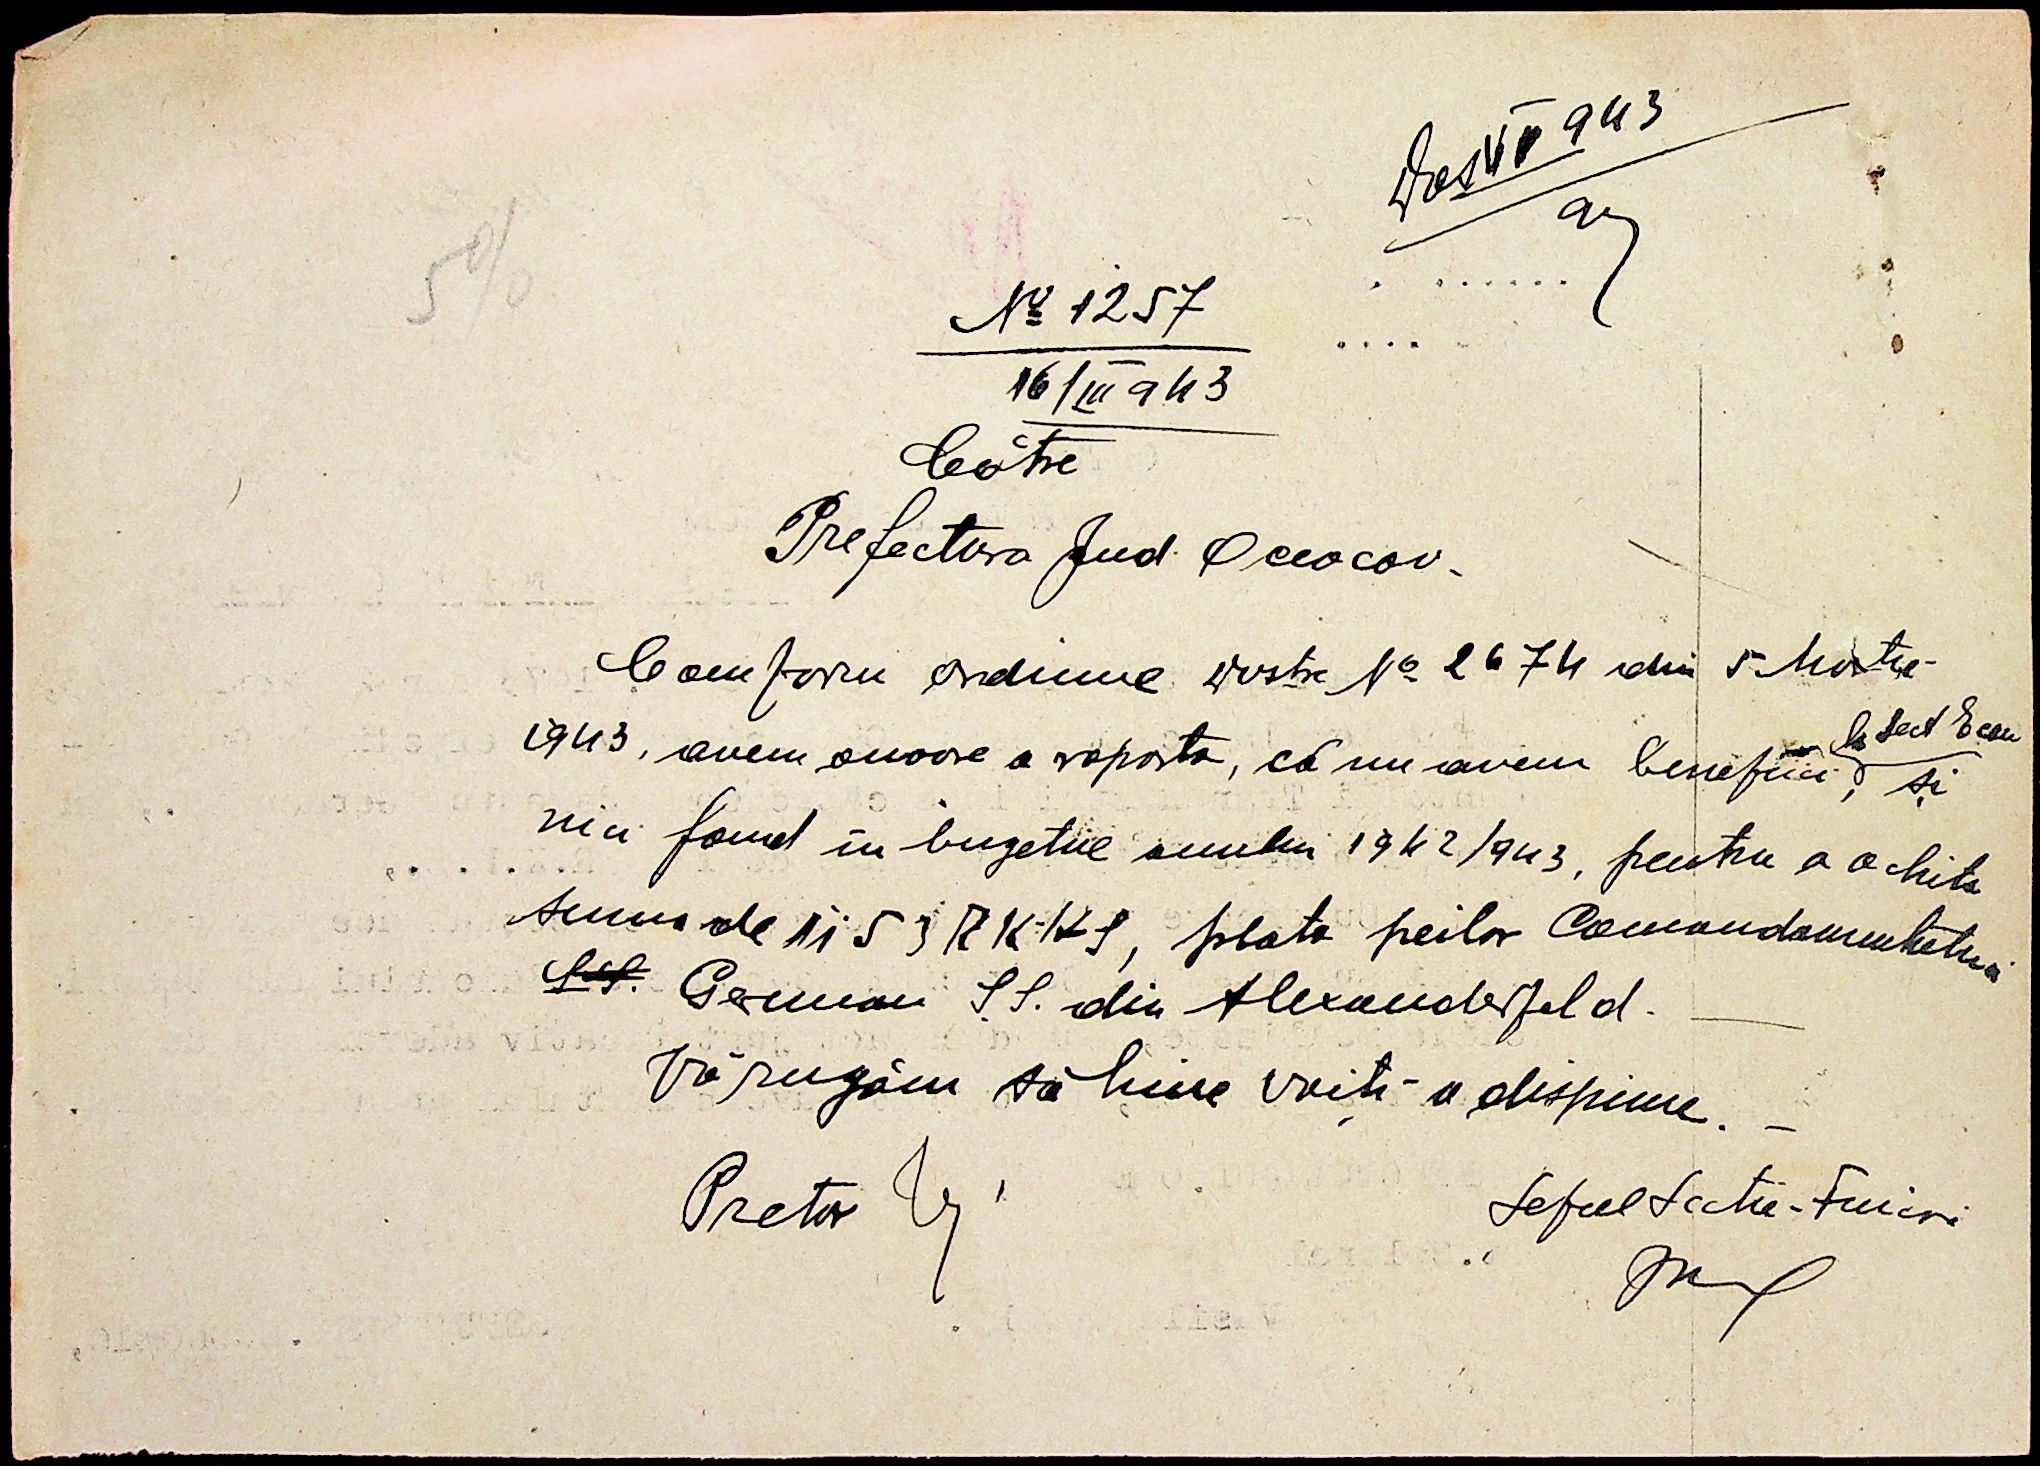 Dos VI 943
5%
№ 1257
16/III 943
Către
Prefectura Jud. Oceacov.
Conform ordinului Dvstre № 2674 din 5 Martie
1943, avem onoare a raporta, că nu avem beneficii, la Sect Econ și
nici fond în bugetul anului 1942/943, pentru a achita
suma de 1153 RKKS, plata peilor Comandamentului
S.S. German S.S. din Alexanderfeld.
Vă rugăm să bine voiți a dispune. -
Pretor
Șeful Secție-Financi